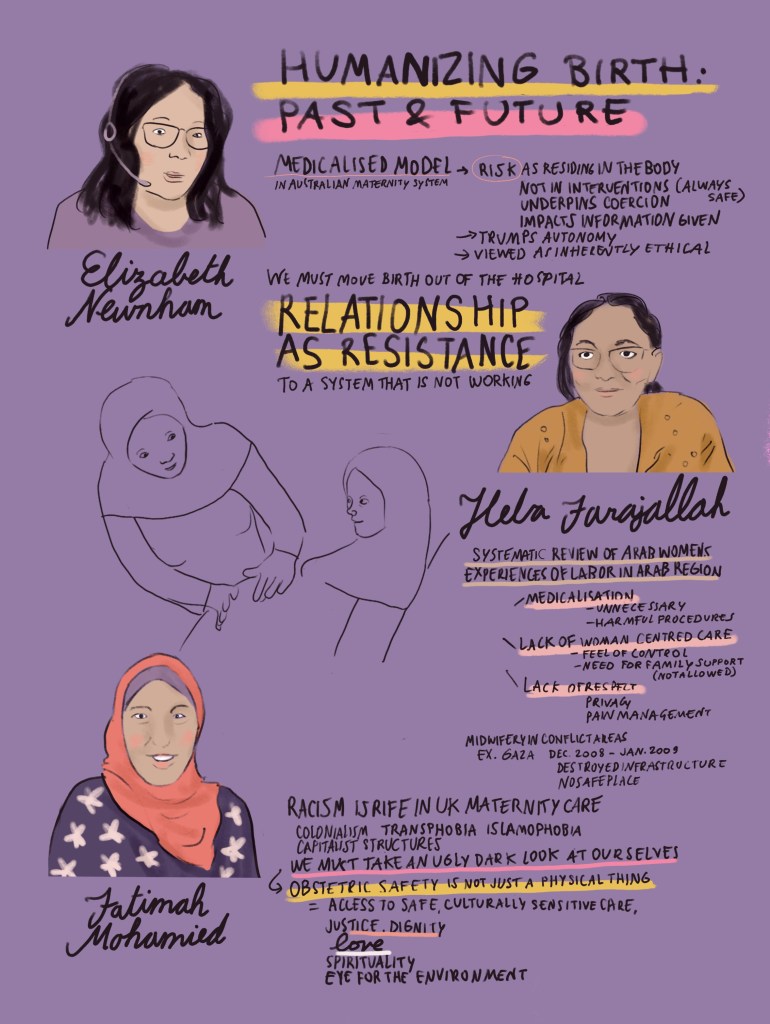 HUMANIZING BIRTH:
PAST & FUTURE
MEDICALISED MODEL → RISK AS RESIDING IN THE BODY
IN AUSTRALIAN MATERNITY SYSTEM
NOT IN INTERVENTIONS (ALWAYS SAFE)
UNDERPINS COERCION
IMPACTS INFORMATION GIVEN
→ TRUMPS AUTONOMY
→ VIEWED AS INHERENTLY ETHICAL
Elizabeth
Newnham
WE MUST MOVE BIRTH OUT OF THE HOSPITAL
RELATIONSHIP
AS RESISTANCE
TO A SYSTEM THAT IS NOT WORKING
Hela Farajallah
SYSTEMATIC REVIEW OF ARAB WOMENS
EXPERIENCES OF LABOR IN ARAB REGION
MEDICALISATION
- UNNECESSARY
- HARMFUL PROCEDURES
LACK OF WOMAN CENTRED CARE
- FEEL OF CONTROL
- NEED FOR FAMILY SUPPORT
(NOT ALLOWED)
LACK OF RESPECT
PRIVACY
PAIN MANAGEMENT
MIDWIFERY IN CONFLICT AREAS
EX. GAZA DEC. 2008 - JAN. 2009
DESTROYED INFRASTRUCTURE
NO SAFE PLACE
RACISM IS RIFE IN UK MATERNITY CARE
COLONIALISM TRANSPHOBIA ISLAMOPHOBIA
CAPITALIST STRUCTURES
WE MUST TAKE AN UGLY DARK LOOK AT OURSELVES
OBSTETRIC SAFETY IS NOT JUST A PHYSICAL THING
= ACCESS TO SAFE, CULTURALLY SENSITIVE CARE,
JUSTICE. DIGNITY
love
SPIRITUALITY
EYE FOR THE ENVIRONMENT
Fatimah
Mohamied